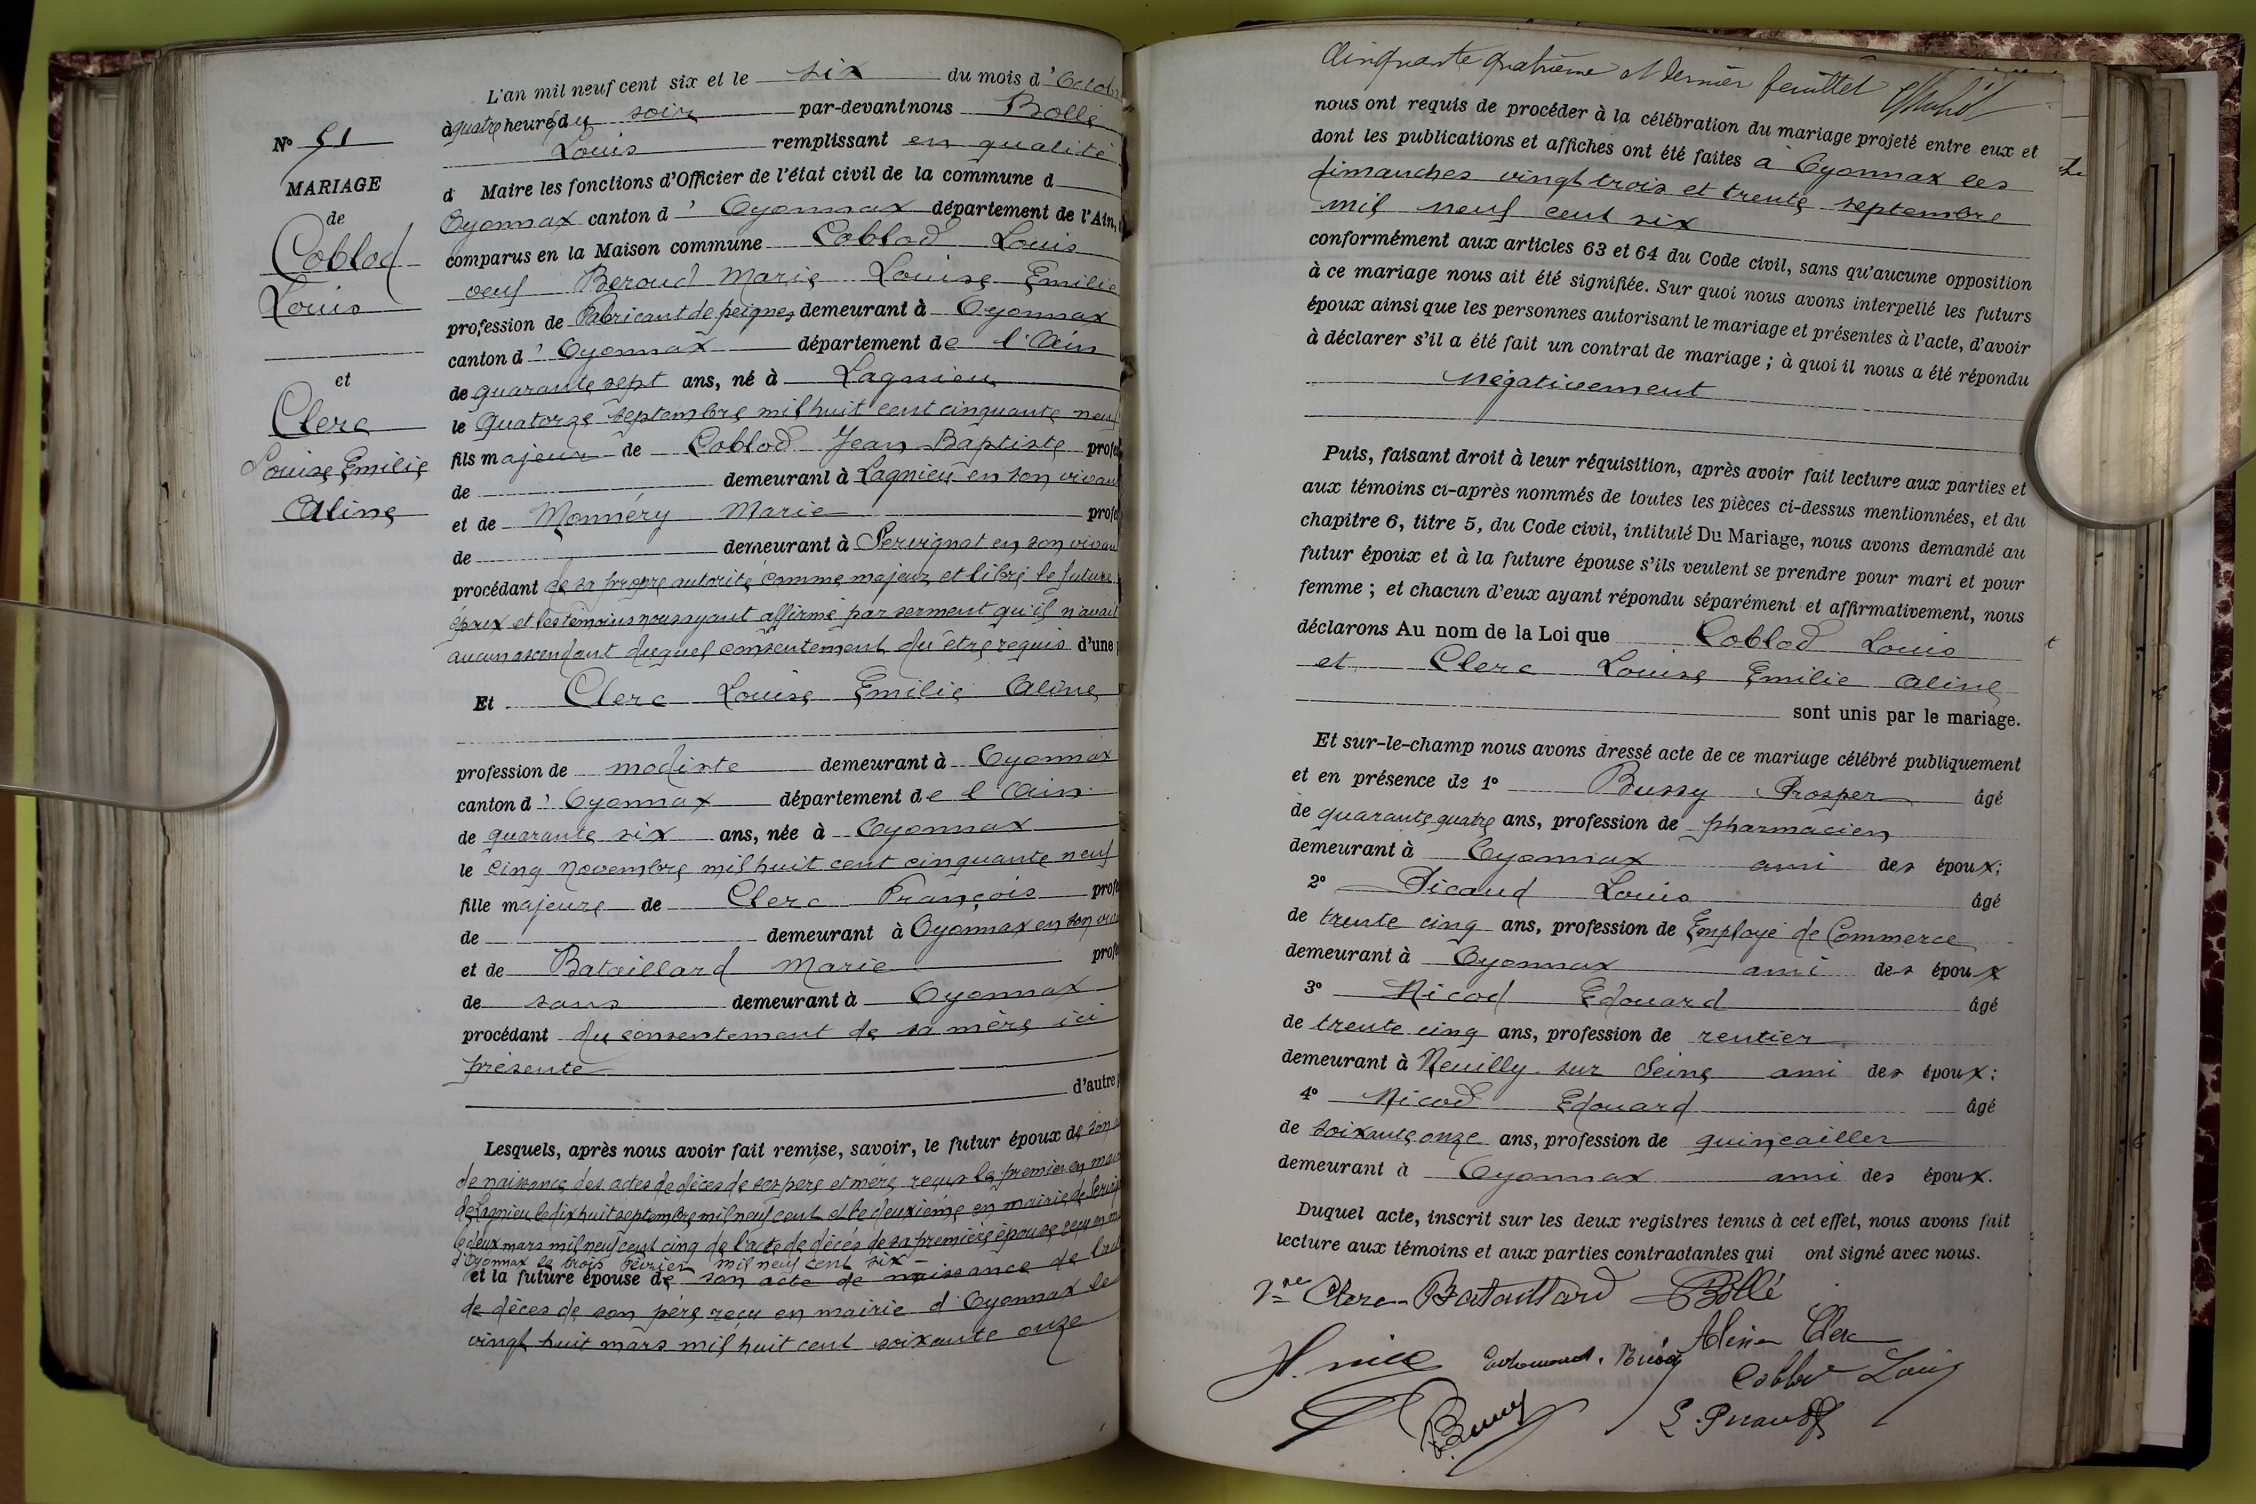 L'an mil neuf cent six et le six du mois d'Octob
à quatre heures du soir par-devant nous Bollé
Louis remplissant en qualité
d Maire les fonctions d'Officier de l'état civil de la commune d
Oyonnax canton d'Oyonnax département de l'Ain,
comparus en la Maison commune Coblod Louis
veuf Beroud Marie Louise Emilie
profession de Fabricant de peignes demeurant à Oyonnax
canton d'Oyonnax département de l'Ain
de quarante sept ans, né à Lagnieu
le quatorze septembre mil huit cent cinquante neuf
fils majeur de Coblod Jean Baptiste profe
de demeurant à Lagnieu en son vivant
et de Monnéry Marie profe
de demeurant à Servignat en son vivan
procédant de sa propre autorité comme majeur et libre le futur
époux et les témoins nous ayant affirmé par serment qu'il n'avait
aucun ascendant duquel consentement dû être requis d'une
Et Clerc Louise Emilie Aline
profession de modiste demeurant à Oyonnax
canton d'Oyonnax département de l'Ain
de quarante six ans, née à Oyonnax
le cinq Novembre mil huit cent cinquante neuf
fille majeure de Clerc François profe
de demeurant à Oyonnax en son viv
et de Bataillard Marie profe
de sans demeurant à Oyonnax
procédant du consentement de sa mère ici
présente
d'autre
Lesquels, après nous avoir fait remise, savoir, le futur époux de son a
de naissance des actes de décès de ses père et mère reçus le premier en mai
de Lagnieu le dix huit septembre mil neuf cent et le deuxième en mairie de Servig
le deux mars mil neuf cent cinq de l'acte de décès de sa première épouse reçu en
d'Oyonnax le trois février mil neuf cent six
et la future épouse de son acte de naissance de l'ac
de décès de son père reçu en mairie d'Oyonnax le
vingt huit mars mil huit cent soixante onze
N° 51
MARIAGE
de
Coblod
Louis
et
Clerc
Louise Emilie
Aline
Cinquante quatrième et dernier feuillet
nous ont requis de procéder à la célébration du mariage projeté entre eux et
dont les publications et affiches ont été faites à Oyonnax les
dimanches vingt trois et trente septembre
mil neuf cent six
conformément aux articles 63 et 64 du Code civil, sans qu'aucune opposition
à ce mariage nous ait été signifiée. Sur quoi nous avons interpellé les futurs
époux ainsi que les personnes autorisant le mariage et présentes à l'acte, d'avoir
à déclarer s'il a été fait un contrat de mariage ; à quoi il nous a été répondu
négativement
Puis, faisant droit à leur réquisition, après avoir fait lecture aux parties et
aux témoins ci-après nommés de toutes les pièces ci-dessus mentionnées, et du
chapitre 6, titre 5, du Code civil, intitulé Du Mariage, nous avons demandé au
futur époux et à la future épouse s'ils veulent se prendre pour mari et pour
femme ; et chacun d'eux ayant répondu séparément et affirmativement, nous
déclarons Au nom de la Loi que Coblod Louis
et Clerc Louise Emilie Aline
sont unis par le mariage.
Et sur-le-champ nous avons dressé acte de ce mariage célébré publiquement
et en présence de 1° Bussy Prosper âgé
de quarante quatre ans, profession de pharmacien
demeurant à Oyonnax ami des époux;
2° Picaud Louis âgé
de trente cinq ans, profession de Employé de Commerce
demeurant à Oyonnax ami des époux
3° Nicod Edouard âgé
de trente cinq ans, profession de rentier
demeurant à Neuilly sur Seine ami des époux;
4° Nicod Edouard âgé
de soixante onze ans, profession de quincailler
demeurant à Oyonnax ami des époux.
Duquel acte, inscrit sur les deux registres tenus à cet effet, nous avons fait
lecture aux témoins et aux parties contractantes qui ont signé avec nous.
Vve Clerc-Bataillard Bollé
Aline Clerc
Coblod Louis